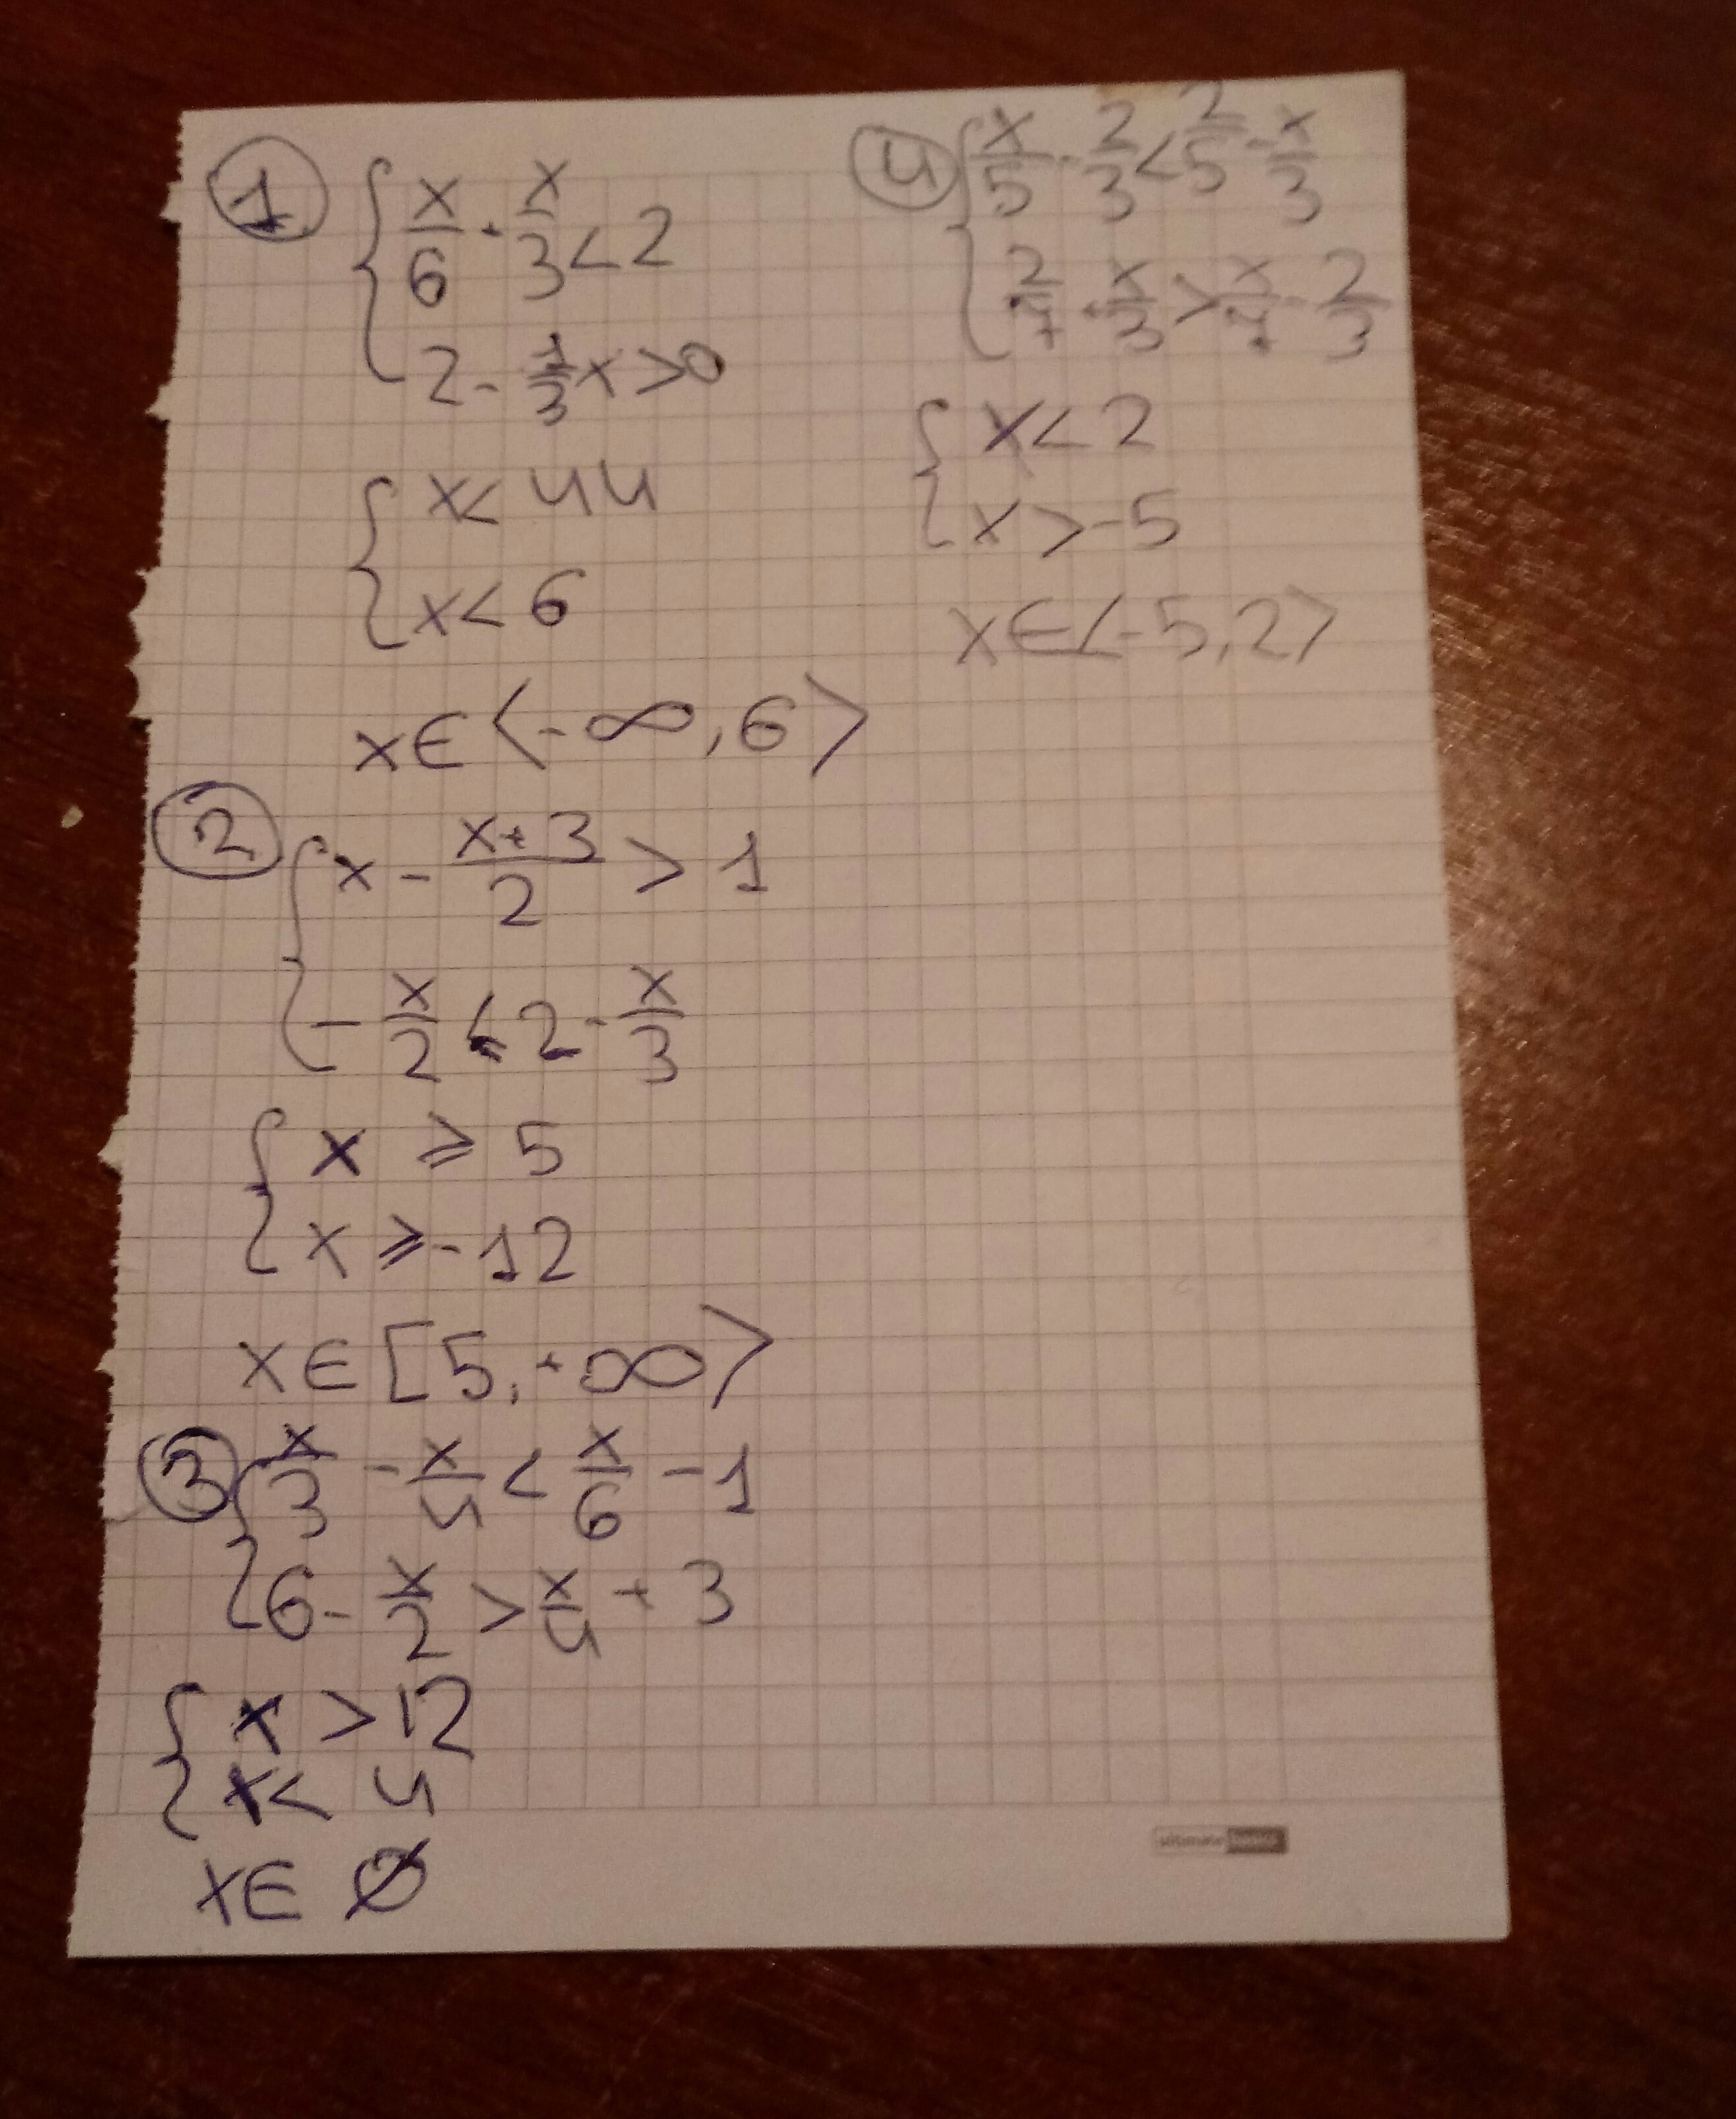 1
x/6 + x/3 < 2
2 - 1/3 x > 0
x < 44
x < 6
x ∈ ⟨-∞, 6⟩
2
x - (x+3)/2 > 1
-x/2 ≤ 2 - x/3
x ⩾ 5
x ⩾ -12
x ∈ [5, +∞⟩
3
x/3 - x/4 < x/6 - 1
6 - x/2 > x/4 + 3
x > 12
x < 4
x ∈ Ø
4
x/5 - 2/3 < 2/5 - x/3
2/7 + x/3 > x/7 - 2/3
x < 2
x > -5
x ∈ ⟨-5, 2⟩
ultimate basics